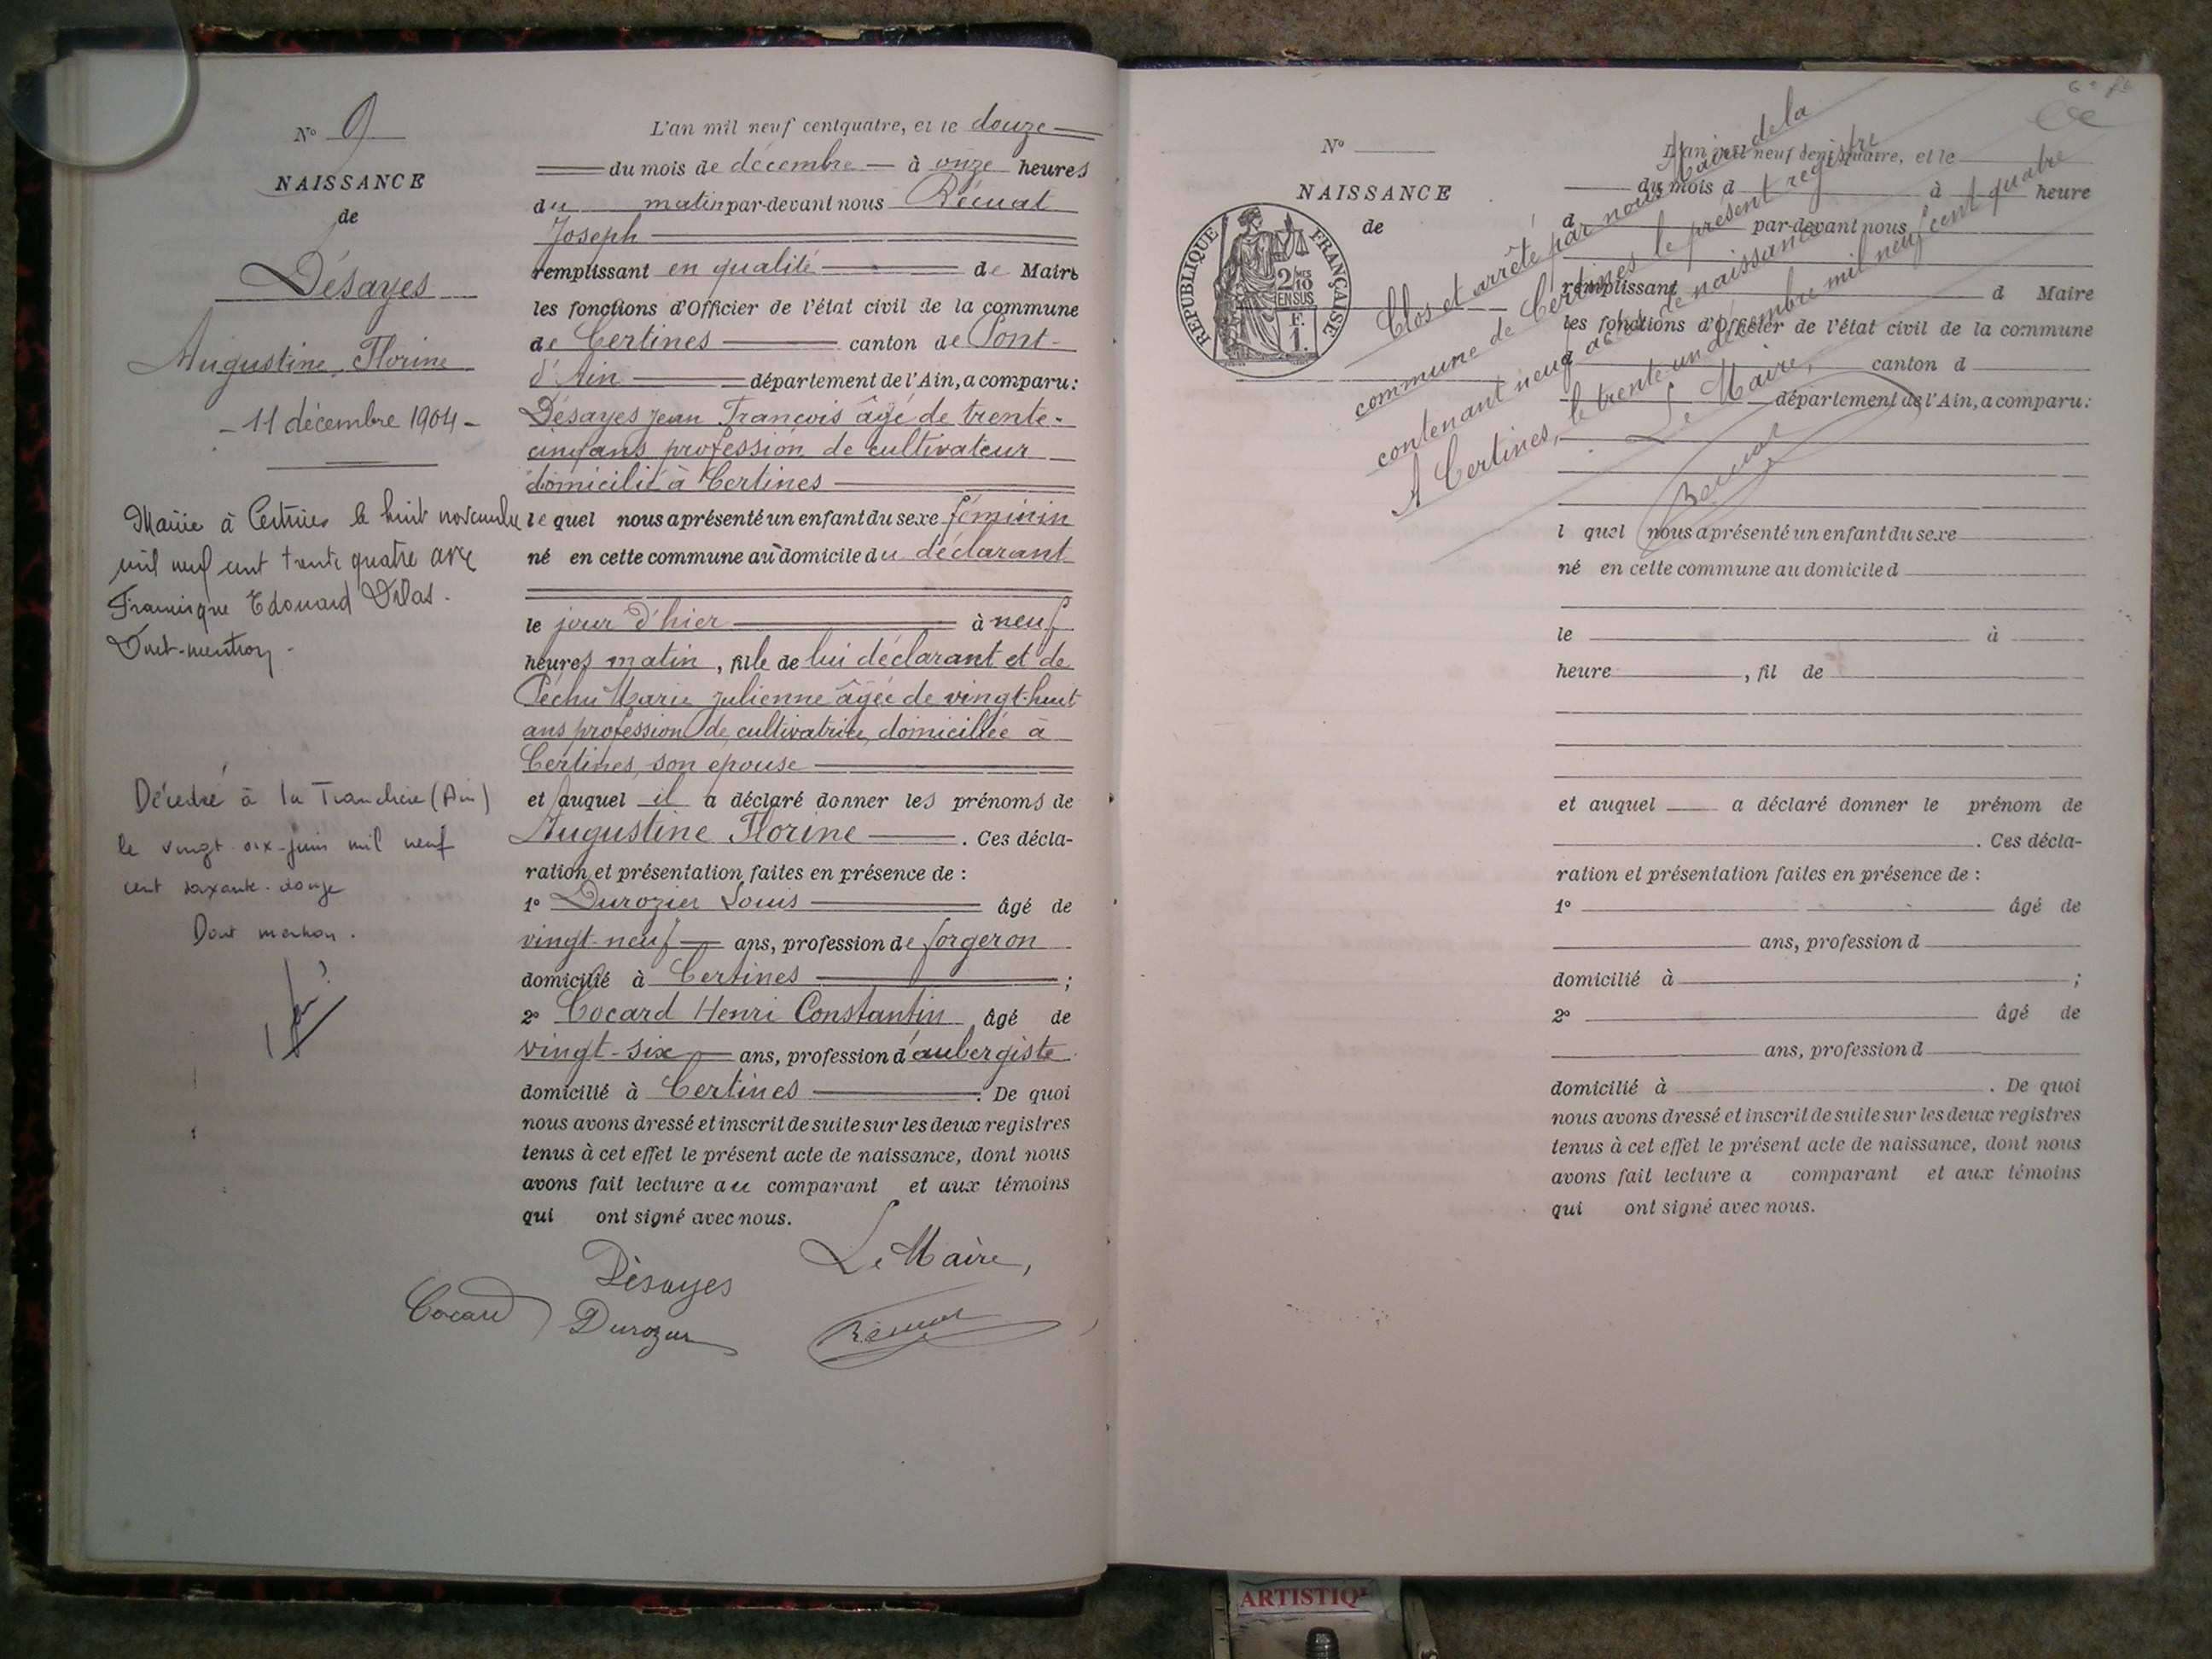 N° 9
NAISSANCE
de
Désayes
Augustine Florine
- 11 décembre 1904 -
Mariée à Certines le huit novembre
mil neuf cent trente quatre avec
Francisque Edouard
Dont mention.
Décédée à la Tranclière (Ain)
le vingt six juin mil neuf
cent soixante-douze
Dont mention.
L'an mil neuf cent quatre, et le douze
du mois de décembre à onze heures
du matin par-devant nous Récuat
Joseph
remplissant en qualité de Maire
les fonctions d'Officier de l'état civil de la commune
de Certines canton de Pont-
d'Ain département de l'Ain, a comparu:
Désayes Jean François âgé de trente-
cinq ans profession de cultivateur
domicilié à Certines
lequel nous a présenté un enfant du sexe féminin
né en cette commune au domicile du déclarant
le jour d'hier à neuf
heures matin, fille de lui déclarant et de
Péchu Marie Julienne âgée de vingt-huit
ans profession de cultivatrice, domiciliée à
Certines, son épouse
et auquel il a déclaré donner les prénoms de
Augustine Florine. Ces décla-
ration et présentation faites en présence de :
1° Durozier Louis âgé de
vingt-neuf ans, profession de forgeron
domicilié à Certines ;
2° Cocard Henri Constantin âgé de
vingt-six ans, profession d'aubergiste
domicilié à Certines. De quoi
nous avons dressé et inscrit de suite sur les deux registres
tenus à cet effet le présent acte de naissance, dont nous
avons fait lecture au comparant et aux témoins
qui ont signé avec nous.
Le Maire,
Désayes
Cocard Durozier Récuat
N°
NAISSANCE
de
REPUBLIQUE FRANÇAISE
2/10 MES
EN SUS
F.
1.
Clos et arrêté par nous Maire de la
commune de Certines le présent registre
contenant neuf actes de naissance
A Certines, le trente un décembre mil neuf cent quatre
Le Maire,
Récuat
L'an mil neuf cent quatre, et le
du mois d à heure
d par-devant nous
remplissant d Maire
les fonctions d'Officier de l'état civil de la commune
d canton d
département de l'Ain, a comparu:
l quel nous a présenté un enfant du sexe
né en cette commune au domicile d
le à
heure , fil de
et auquel a déclaré donner le prénom de
. Ces décla-
ration et présentation faites en présence de :
1° âgé de
ans, profession d
domicilié à ;
2° âgé de
ans, profession d
domicilié à . De quoi
nous avons dressé et inscrit de suite sur les deux registres
tenus à cet effet le présent acte de naissance, dont nous
avons fait lecture a comparant et aux témoins
qui ont signé avec nous.
ARTISTIQ